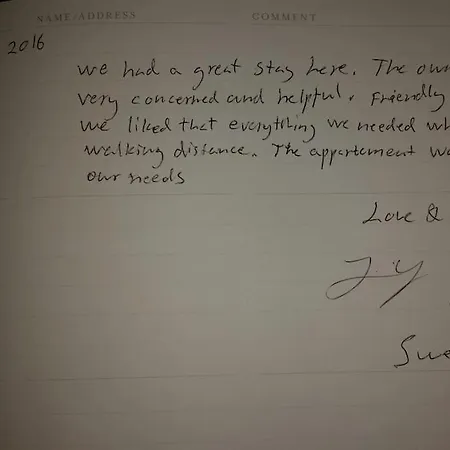 NAME/ADDRESS COMMENT
2016
we had a great stay here. The
very concerned and helpful. Friendly
we liked that everything we needed
walking distance. The appartement
our needs
Love &